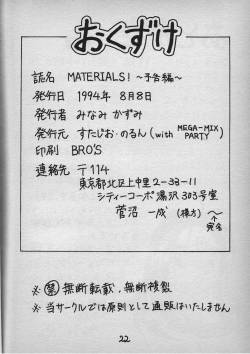 おくずけ
誌名 MATERIALS! ～予告編～
発行日 1994年 8月8日
発行者 みなみ かずみ
発行元 すたじお・のるん(with MEGA-MIX PARTY)
印刷 BRO'S
連絡先 〒114
東京都北区上中里2-38-11
シティーコーポ湯沢303号室
菅沼 一成 (様方) ～
宛名
※ 禁 無断転載、無断複製
※ 当サークルでは原則として通販はいたしません
22